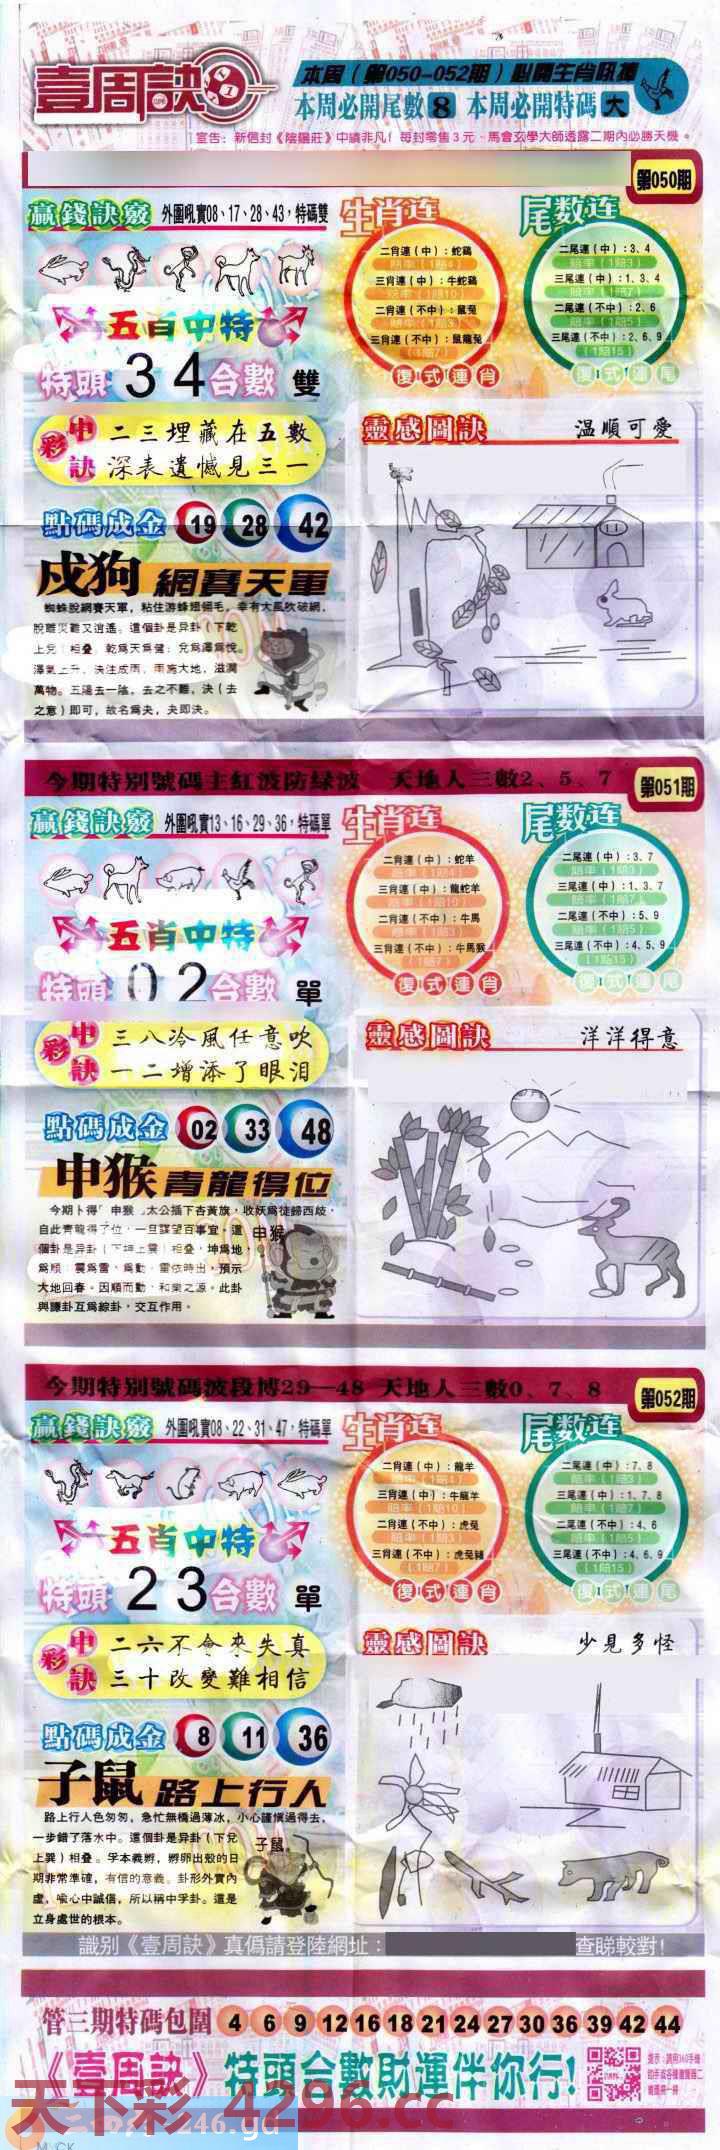 壹周訣
本周（第050-052期）必開生肖訊擯
本周必開尾數 8 本周必開特碼 大
宣告：新信封《陰陽莊》中績非凡！每封零售3元、馬會玄學大師透露二期内必勝天機。
第050期
贏錢訣竅 外圍吼實08、17、28、43，特碼雙
五肖中特
特頭 34 合數 雙
彩中訣
二三埋藏在五數
深表遺憾見三一
點碼成金 19 28 42
戌狗 網賽天軍
蜘蛛脫網賽天軍，粘住游蜂翅傾毛，幸有大風吹破網，
脫離災難又逍遙。這個卦是异卦（下乾
上兌）相疊，乾爲天爲健；兌爲澤爲悅。
澤氣上升、決注成雨，雨施大地，滋潤
萬物。五陽去一陰，去之不難，決（去
之意）即可，故名爲夬，夬即決。
生肖连
二肖連（中）：蛇鷄
賠率（1賠4）
三肖連（中）：牛蛇鷄
賠率（1賠10）
二肖連（不中）：鼠兔
賠率（1賠3）
三肖連（不中）：鼠龍兔
（1賠7）
復式連肖
尾数连
二尾連（中）：3、4
賠率（1賠3）
三尾連（中）：1、3、4
賠率（1賠7）
二尾連（不中）：2、6
賠率（1賠5）
三尾連（不中）：2、6、9
（1賠15）
復式連尾
靈感圖訣 温順可愛
今期特别號碼主紅波防緑波 天地人三數2、5、7
第051期
贏錢訣竅 外圍吼實13、16、29、36，特碼單
五肖中特
特頭 02 合數 單
彩中訣
三八冷風任意吹
一二增添了眼泪
點碼成金 02 33 48
申猴 青龍得位
今期卜得 申猴 太公插下杏黃旗，收妖爲徒歸西岐，
自此青龍得了位，一旦謀望百事宜。這
個卦是异卦（下坤上震）相疊，坤爲地、
爲順；震爲雷、爲動。雷依時出，預示
大地回春。因順而動，和樂之源。此卦
與謙卦互爲綜卦，交互作用。
申猴
生肖连
二肖連（中）：蛇羊
賠率（1賠4）
三肖連（中）：龍蛇羊
賠率（1賠10）
二肖連（不中）：牛馬
賠率（1賠3）
三肖連（不中）：牛馬猴
（1賠7）
復式連肖
尾数连
二尾連（中）：3、7
賠率（1賠3）
三尾連（中）：1、3、7
賠率（1賠7）
二尾連（不中）：5、9
賠率（1賠5）
三尾連（不中）：4、5、9
（1賠15）
復式連尾
靈感圖訣 洋洋得意
今期特别號碼波段博29—48 天地人三數0、7、8
第052期
贏錢訣竅 外圍吼實08、22、31、47，特碼單
五肖中特
特頭 23 合數 單
彩中訣
二六不會來失真
三十改變難相信
點碼成金 8 11 36
子鼠 路上行人
路上行人色匆匆，急忙無橋過薄冰，小心謹慎過得去，
一步錯了落水中。這個卦是异卦（下兌
上巽）相疊。孚本義孵，孵卵出殼的日
期非常準確，有信的意義。卦形外實内
虛，喻心中誠信，所以稱中孚卦。這是
立身處世的根本。
子鼠
生肖连
二肖連（中）：龍羊
賠率（1賠4）
三肖連（中）：牛龍羊
賠率（1賠10）
二肖連（不中）：虎兔
賠率（1賠3）
三肖連（不中）：虎兔豬
（1賠7）
復式連肖
尾数连
二尾連（中）：7、8
賠率（1賠3）
三尾連（中）：1、7、8
賠率（1賠7）
二尾連（不中）：4、6
賠率（1賠5）
三尾連（不中）：4、6、9
（1賠15）
復式連尾
靈感圖訣 少見多怪
識别《壹周訣》真僞請登陸網址：
查睇較對！
管三期特碼包圍 4 6 9 12 16 18 21 24 27 30 36 39 42 44
《壹周訣》特頭合數財運伴你行！
天下彩 4296.cc
246.gd